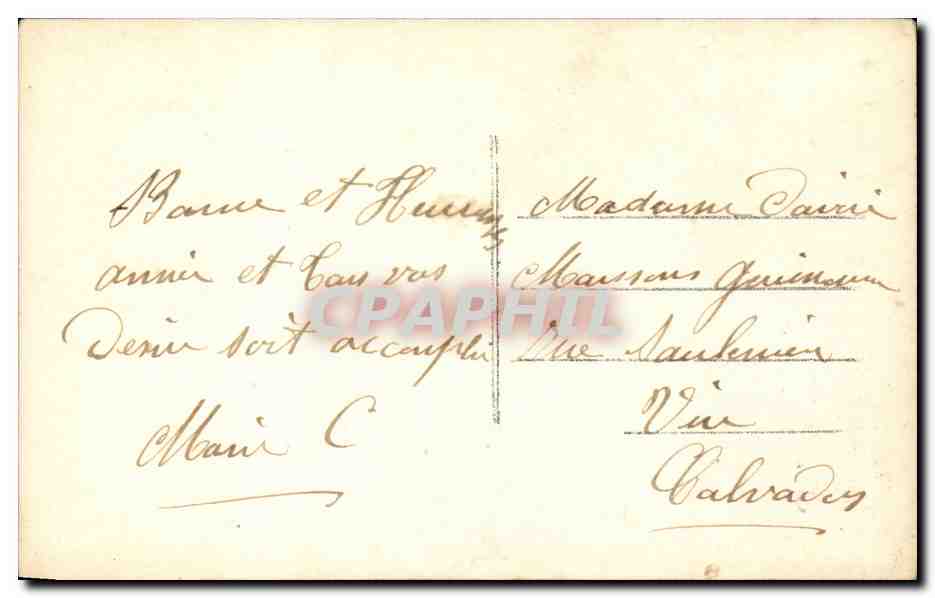 Bonne et Heureuse
année et tous vos
Desir soit accompli
Marie C
Madame
Maisons
Rue Saulnier
Vire
Calvados
CPAPHIL